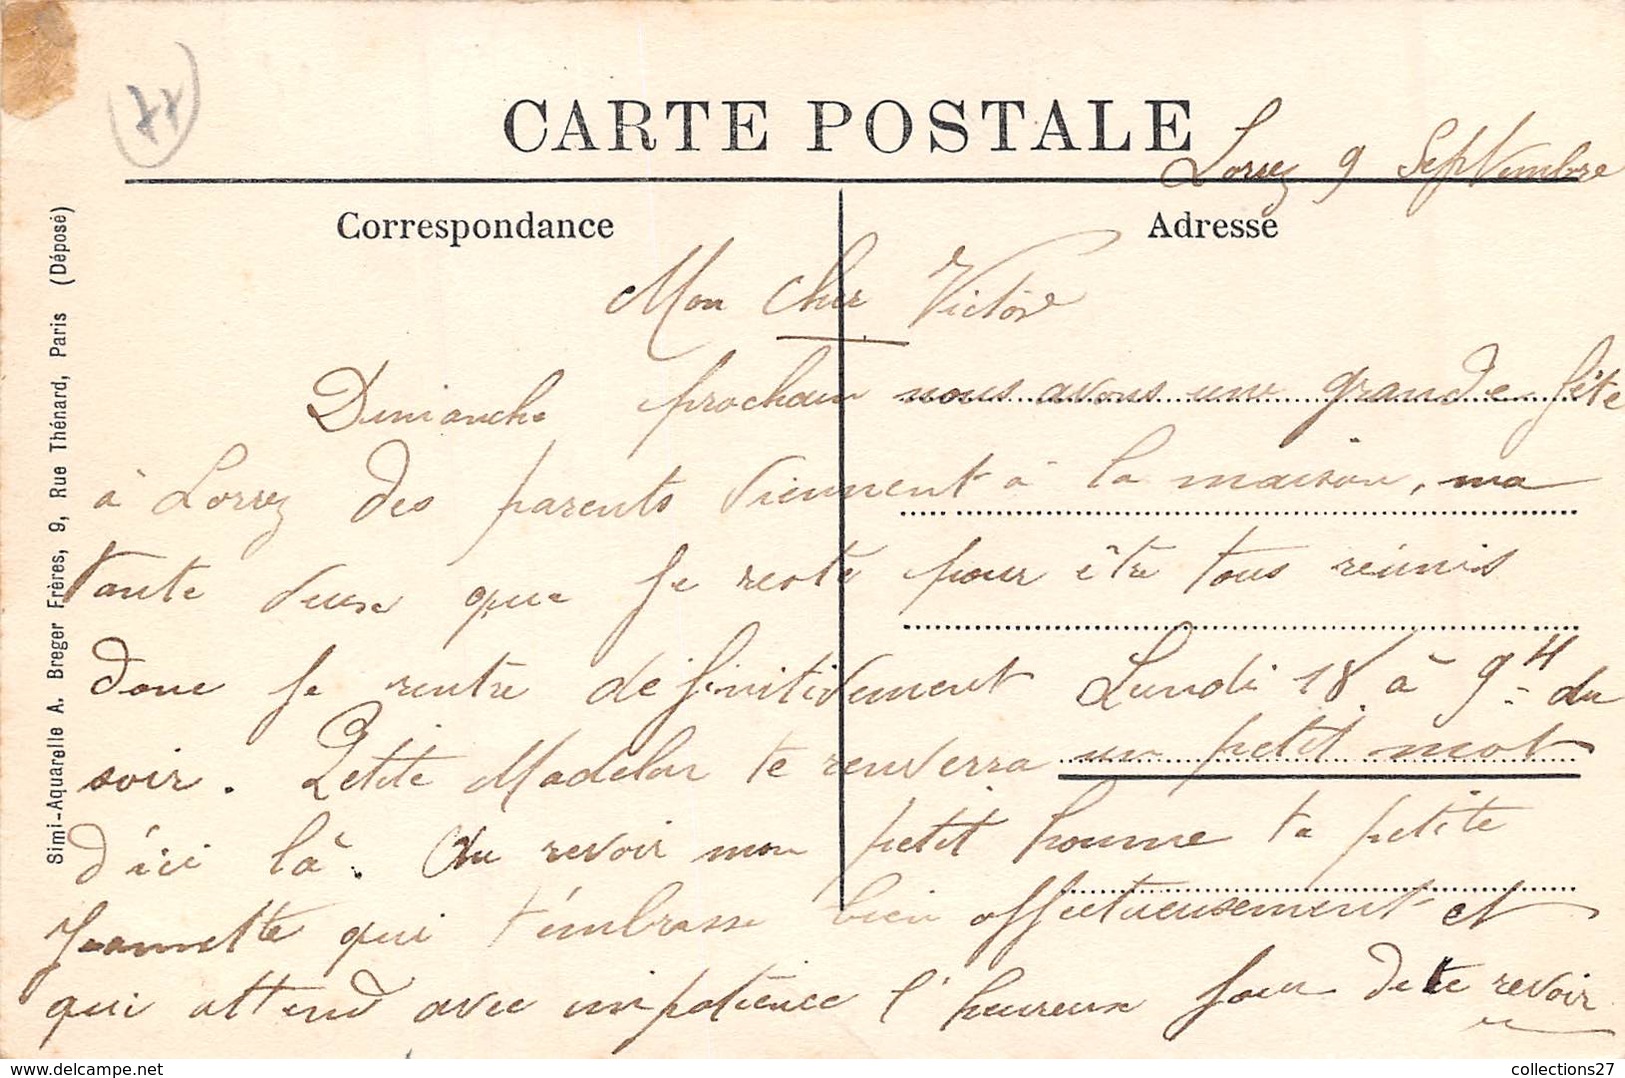 77
CARTE POSTALE
Lorrez 9 Septembre
Correspondance
Adresse
Simi-Aquarelle A. Breger Frères, 9, Rue Thénard, Paris (Déposé)
Mon Cher Victor
Dimanche prochain nous avons une grande fête
à Lorrez des parents viennent à la maison, ma
tante veux que je reste pour être tous réunis
donc je rentre définitivement Lundi 18 à 9H du
soir. Petite Madelon te renverra un petit mot
d'ici là. Au revoir mon petit homme ta petite
Jeannette qui t'embrasse bien affectueusement et
qui attend avec impatience l'heureux jour de te revoir
collections27